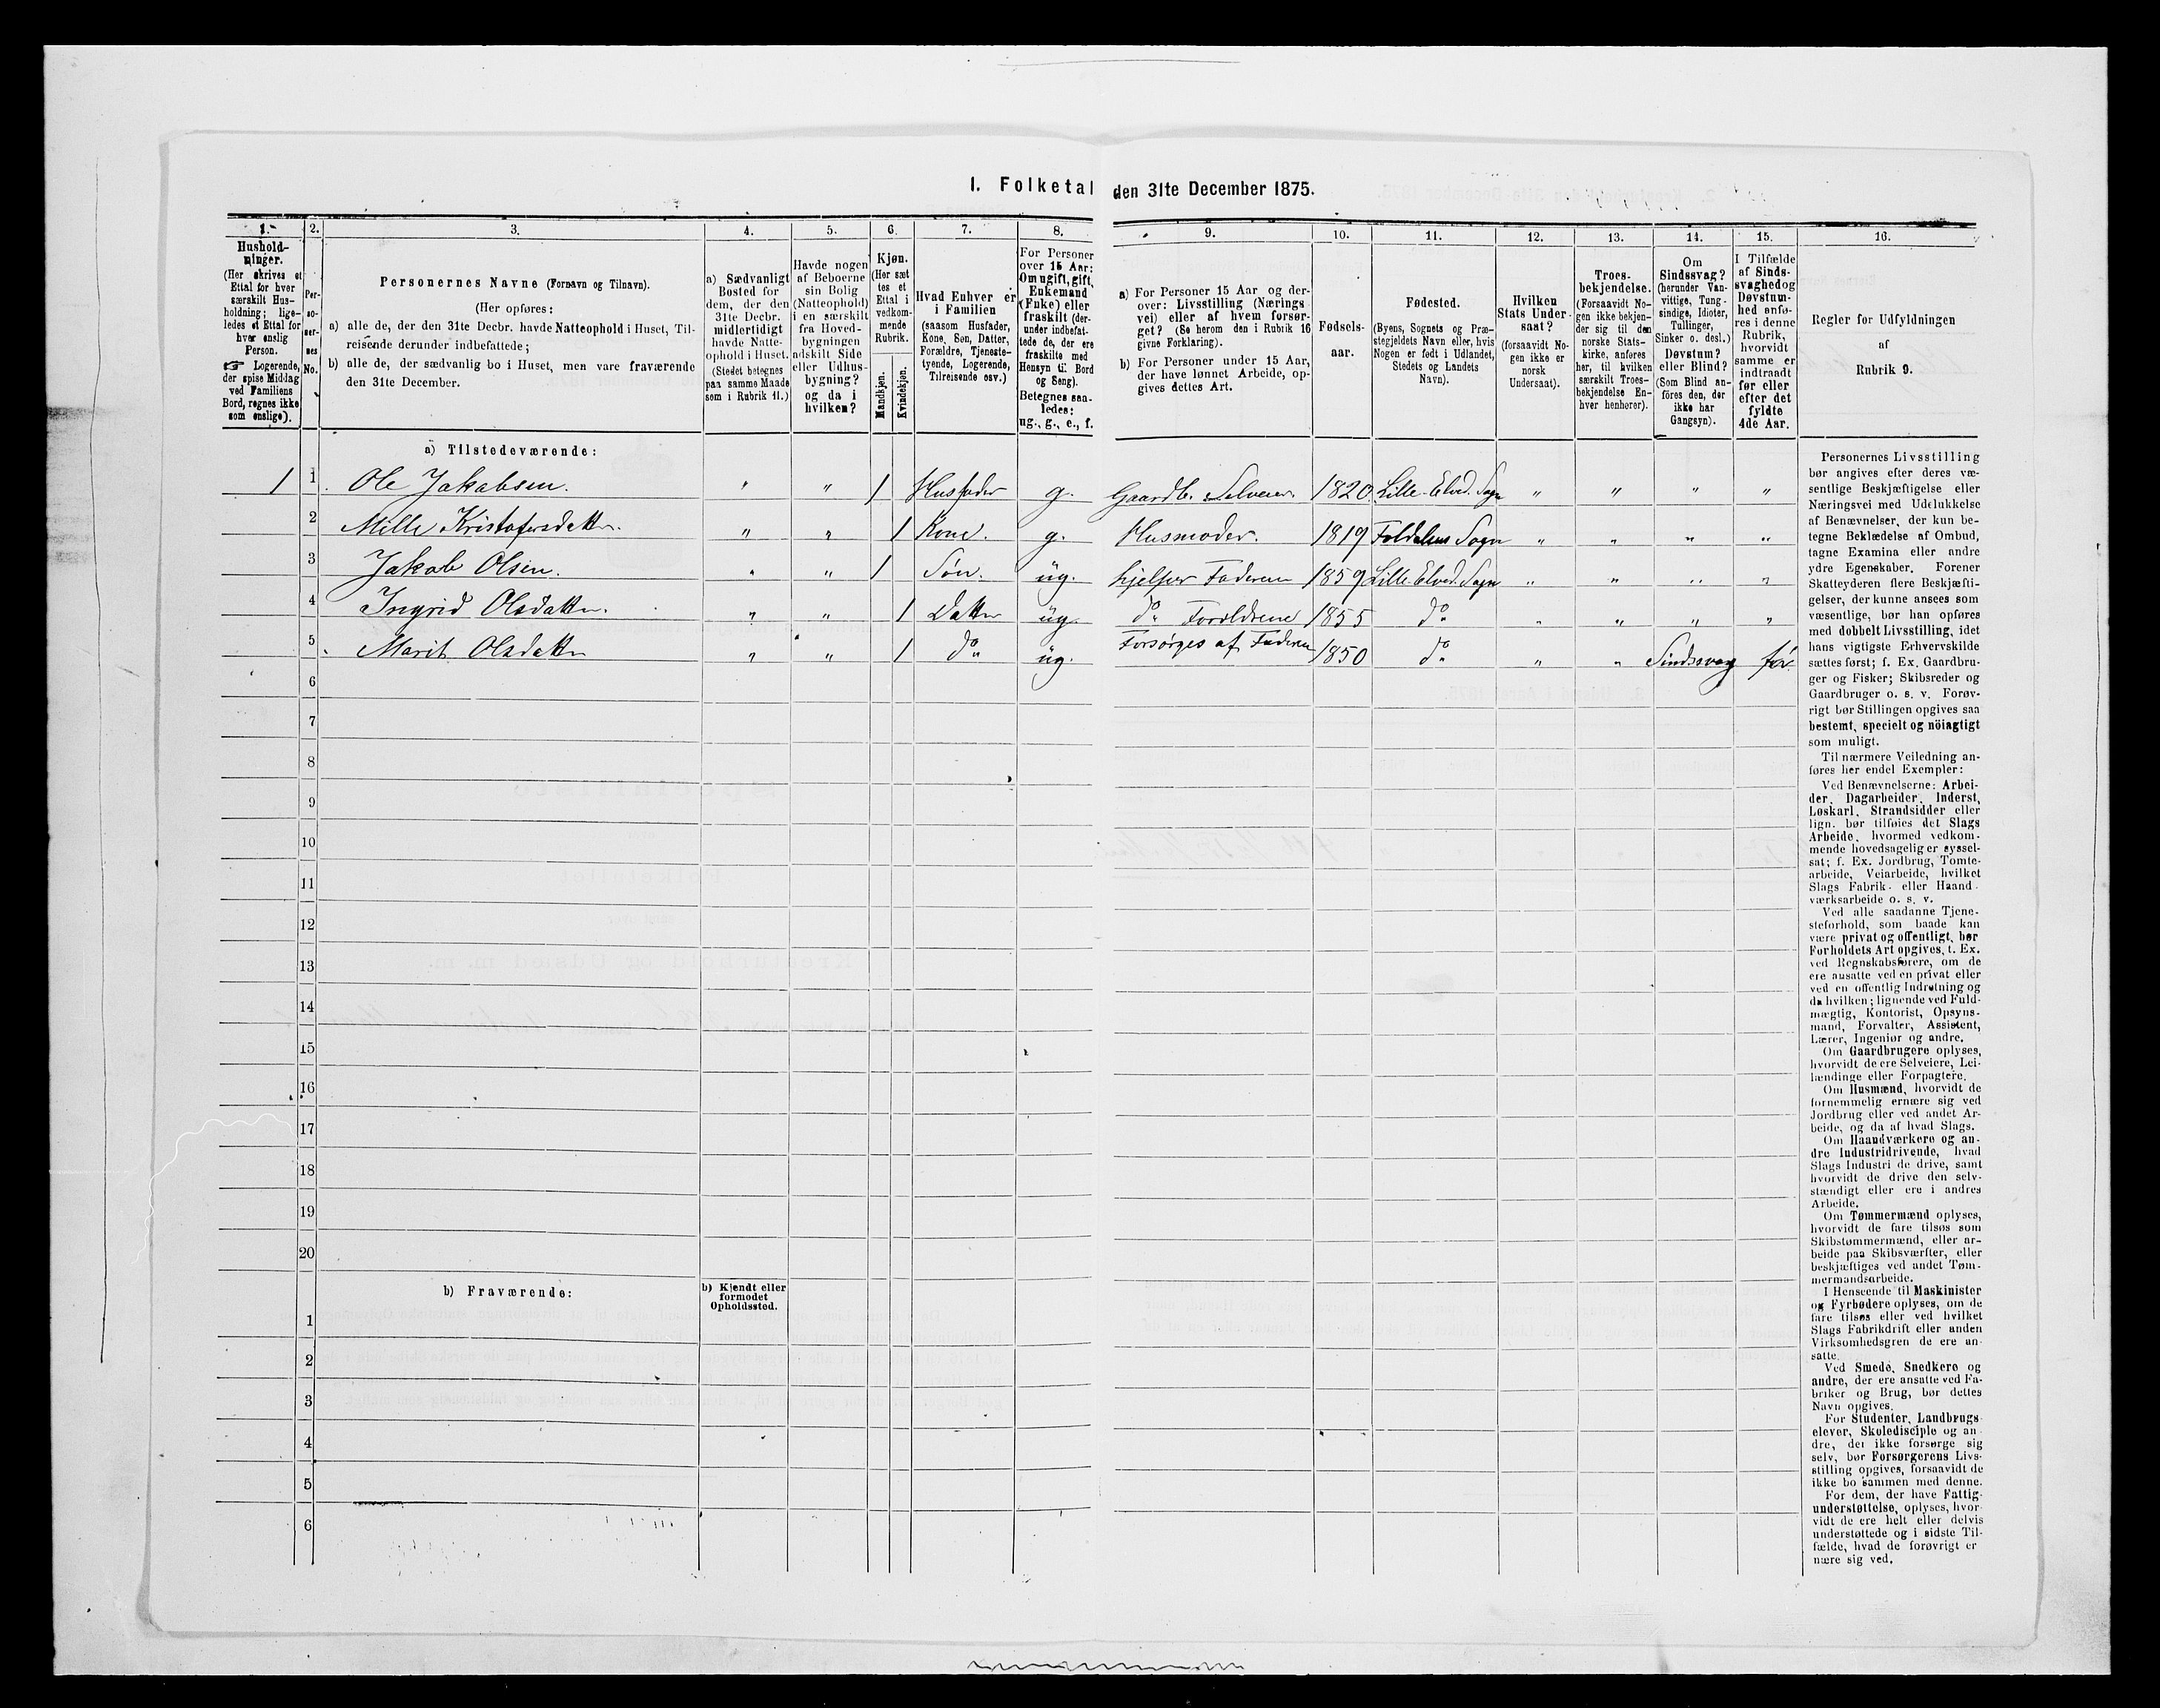 I. Folketal den 31te December 1875.
1. 2. 3. 4. 5. 6. 7. 8. 9. 10. 11. 12. 13. 14. 15. 16.
Hushold-
ninger.
(Her skrives et
Ettal for hver
særskilt Hus-
holdning; lige-
ledes et Ettal for
hver enslig
Person.
☞ Logerende,
der spise Middag
ved Familiens
Bord, regnes ikke
som enslige).
Per-
so-
ner-
nes
No.
Personernes Navne (Fornavn og Tilnavn).
(Her opføres:
a) alle de, der den 31te Decbr. havde Natteophold i Huset, Til-
reisende derunder indbefattede;
b) alle de, der sædvanlig bo i Huset, men vare fraværende
den 31te December.
a) Sædvanligt
Bosted for
dem, der den
31te Decbr.
midlertidigt
havde Natte-
ophold i Huset.
(Stedet betegnes
paa samme Maade
som i Rubrik 11.)
Havde nogen
af Beboerne
sin Bolig
(Natteophold)
i en særskilt
fra Hoved-
bygningen
adskilt Side
eller Udhus-
bygning?
og da i
hvilken?
Kjøn.
(Her sæt
tes et
Ettal i
vedkom-
mende
Rubrik.
Mandkjøn.
Kvindekjøn.
Hvad Enhver er
i Familien
(saasom Husfader,
Kone, Søn, Datter,
Forældre, Tjeneste-
tyende, Logerende,
Tilreisende osv.)
For Personer
over 15 Aar:
Om ugift, gift,
Enkemand
(Enke) eller
fraskilt (der-
under indbefat-
tede de, der ere
fraskilte med
Hensyn til Bord
og Seng).
Betegnes saa-
ledes:
ug., g., e., f.
a) For Personer 15 Aar og der-
over: Livsstilling (Nærings
vei) eller af hvem forsør-
get? (Se herom den i Rubrik 16
givne Forklaring).
b) For Personer under 15 Aar,
der have lønnet Arbeide, op-
gives dettes Art.
Fødsels-
aar.
Fødested.
(Byens, Sognets og Præ-
stegjeldets Navn eller, hvis
Nogen er født i Udlandet,
Stedets og Landets
Navn).
Hvilken
Stats Under-
saat?
(forsaavidt No-
gen ikke er
norsk
Undersaat).
Troes-
bekjendelse.
(Forsaavidt No-
gen ikke bekjen-
der sig til den
norske Stats-
kirke, anføres
her, til hvilken
særskilt Troes-
bekjendelse En-
hver henhører).
Om
Sindssvag?
(herunder Van-
vittige, Tung-
sindige, Idioter,
Tullinger,
Sinker o. desl.)
Døvstum?
eller Blind?
(Som Blind an-
føres den, der
ikke har
Gangsyn).
I Tilfælde
af Sinds-
svaghed og
Døvstum-
hed anfø-
res i denne
Rubrik,
hvorvidt
samme er
indtraadt
før eller
efter det
fyldte
4de Aar.
Regler for Udfyldningen
af
Rubrik 9.
a) Tilstedeværende:
1 1 Ole Jakobsen. " " 1 Husfader g. Gaardb. Selveier. 1820. Lille-Elved. Sogn " " " "
2 Mille Kristofersdatter. " " 1 Kone. g. Husmoder. 1819 Foldalens Sogn " " " "
3 Jakob Olsen. " " 1 Søn. üg. hjelper Faderen 1859 Lille-Elved. Sogn " " " "
4 Ingrid Olsdatter. " " 1 Datter üg. do Forældrene 1855 do " " " "
5 Marit Olsdatter " " 1 do üg. Forsørges af Faderen 1850 do " " Sindssvag før.
6
7
8
9
10
11
12
13
14
15
16
17
18
19
20
b) Fraværende:
b) Kjendt eller
formodet
Opholdssted.
1
2
3
4
5
6
Personernes Livsstilling
bør angives efter deres væ-
sentlige Beskjæftigelse eller
Næringsvei med Udelukkelse
af Benævnelser, der kun be-
tegne Beklædelse af Ombud,
tagne Examina eller andre
ydre Egenskaber. Forener
Skatteyderen flere Beskjæfti-
gelser, der kunne ansees som
væsentlige, bør han opføres
med dobbelt Livsstilling, idet
hans vigtigste Erhvervskilde
sættes først; f. Ex. Gaardbru-
ger og Fisker; Skibsreder og
Gaardbruger o. s. v. Forøv-
rigt bør Stillingen opgives saa
bestemt, specielt og nöiagtigt
som muligt.
Til nærmere Veiledning an-
føres her endel Exempler:
Ved Benævnelserne: Arbei-
der, Dagarbeider, Inderst,
Løskarl, Strandsidder eller
lign. bør tilføies det Slags
Arbeide, hvormed vedkom-
mende hovedsagelig er syssel-
sat; f. Ex. Jordbrug, Tomte-
arbeide, Veiarbeide, hvilket
Slags Fabrik- eller Haand-
værksarbeide o. s. v.
Ved alle saadanne Tjene-
steforhold, som baade kan
være privat og offentligt, bør
Forholdets Art opgives, t. Ex.
ved Regnskabsførere, om de
ere ansatte ved en privat eller
ved en offentlig Indretning og
da hvilken; lignende ved Fuld-
mægtig, Kontorist, Opsyns-
mand, Forvalter, Assistent,
Lærer, Ingeniør og andre.
Om Gaardbrugere oplyses,
hvorvidt de ere Selveiere, Lei-
lændinge eller Forpagtere.
Om Husmænd, hvorvidt de
fornemmelig ernære sig ved
Jordbrug eller ved andet Ar-
beide, og da af hvad Slags.
Om Haandværkere og an-
dre Industridrivende, hvad
Slags Industri de drive, samt
hvorvidt de drive den selv-
stændigt eller ere i andres
Arbeide.
Om Tømmermænd oplyses,
hvorvidt de fare tilsøs som
Skibstømmermænd, eller ar-
beide paa Skibsværfter, eller
beskjæftiges ved andet Tøm-
mermandsarbeide.
I Henseende til Maskinister
og Fyrbødere oplyses, om de
fare tilsøs eller ved hvilket
Slags Fabrikdrift eller anden
Virksomhedsgren de ere an-
satte.
Ved Smede, Snedkere og
andre, der ere ansatte ved Fa-
briker og Brug, bør dettes
Navn opgives.
For Studenter, Landbrugs
elever, Skoledisciple og an
dre, der ikke forsørge sig
selv, bør Forsørgerens Livs-
stilling opgives, forsaavidt de
ikke bo sammen med denne.
For dem, der have Fattig-
understøttelse, oplyses, hvor-
vidt de ere helt eller delvis
understøttede og i sidste Til-
fælde, hvad de forøvrigt er
nære sig ved.